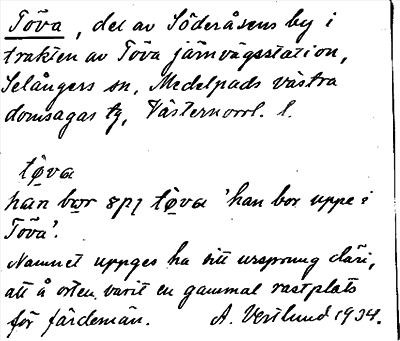 Töva, del av Söderåsens by i
trakten av Töva järnvägsstation,
Selångers sn, Medelpads västra
domsagas tg, Västernorrl. l.
tø̣va
han bo̤r ɛpı tø̣va 'han bor uppe i
Töva'.
Namnet uppges ha sitt ursprung däri,
att å orten varit en gammal rastplats
för färdemän. A. Vestlund 1934.